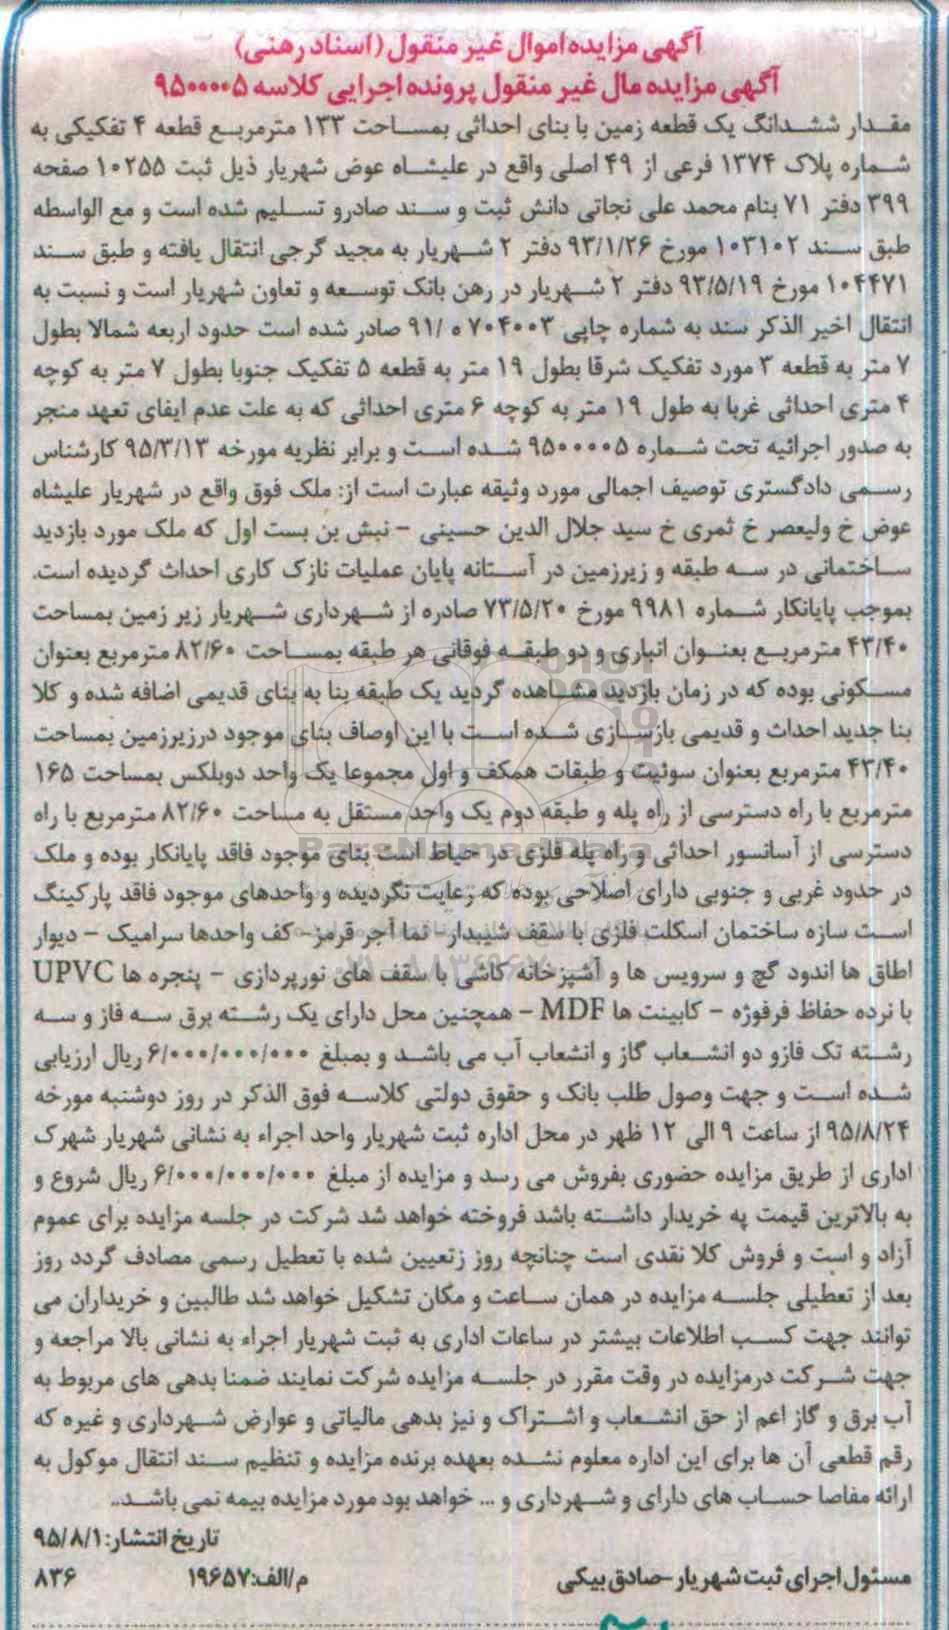 آگهی مزایده اموال غیر منقول (اسناد رهنی)
آگهی مزایده مال غیر منقول پرونده اجرایی کلاسه ۹۵۰۰۰۰۵
مقدار ششدانگ یک قطعه زمین با بنای احداثی بمساحت ۱۳۳ مترمربع قطعه ۴ تفکیکی به
شماره پلاک ۱۳۷۴ فرعی از ۴۹ اصلی واقع در علیشاه عوض شهریار ذیل ثبت ۱۰۲۵۵ صفحه
۳۹۹ دفتر ۷۱ بنام محمد علی نجاتی دانش ثبت و سند صادرو تسلیم شده است و مع الواسطه
طبق سند ۱۰۳۱۰۲ مورخ ۹۳/۱/۲۶ دفتر ۲ شهریار به مجید گرجی انتقال یافته و طبق سند
۱۰۴۴۷۱ مورخ ۹۳/۵/۱۹ دفتر ۲ شهریار در رهن بانک توسعه و تعاون شهریار است و نسبت به
انتقال اخیر الذکر سند به شماره چاپی ۷۰۴۰۰۳ ه /۹۱ صادر شده است حدود اربعه شمالا بطول
۷ متر به قطعه ۳ مورد تفکیک شرقا بطول ۱۹ متر به قطعه ۵ تفکیک جنوبا بطول ۷ متر به کوچه
۴ متری احداثی غربا به طول ۱۹ متر به کوچه ۶ متری احداثی که به علت عدم ایفای تعهد منجر
به صدور اجرائیه تحت شماره ۹۵۰۰۰۰۵ شده است و برابر نظریه مورخه ۹۵/۳/۱۳ کارشناس
رسمی دادگستری توصیف اجمالی مورد وثیقه عبارت است از: ملک فوق واقع در شهریار علیشاه
عوض خ ولیعصر خ ثمری خ سید جلال الدین حسینی – نبش بن بست اول که ملک مورد بازدید
ساختمانی در سه طبقه و زیرزمین در آستانه پایان عملیات نازک کاری احداث گردیده است.
بموجب پایانکار شماره ۹۹۸۱ مورخ ۷۳/۵/۲۰ صادره از شهرداری شهریار زیر زمین بمساحت
۴۳/۴۰ مترمربع بعنوان انباری و دو طبقه فوقانی هر طبقه بمساحت ۸۲/۶۰ مترمربع بعنوان
مسکونی بوده که در زمان بازدید مشاهده گردید یک طبقه بنا به بنای قدیمی اضافه شده و کلا
بنا جدید احداث و قدیمی بازسازی شده است با این اوصاف بنای موجود درزیرزمین بمساحت
۴۳/۴۰ مترمربع بعنوان سوئیت و طبقات همکف و اول مجموعا یک واحد دوبلکس بمساحت ۱۶۵
مترمربع با راه دسترسی از راه پله و طبقه دوم یک واحد مستقل به مساحت ۸۲/۶۰ مترمربع با راه
دسترسی از آسانسور احداثی و راه پله فلزی در حیاط است بنای موجود فاقد پایانکار بوده و ملک
در حدود غربی و جنوبی دارای اصلاحی بوده که رعایت نگردیده و واحدهای موجود فاقد پارکینگ
است سازه ساختمان اسکلت فلزی با سقف شیبدار- نما آجر قرمز- کف واحدها سرامیک – دیوار
اطاق ها اندود گچ و سرویس ها و آشپزخانه کاشی با سقف های نورپردازی – پنجره ها UPVC
با نرده حفاظ فرفوژه – کابینت ها MDF – همچنین محل دارای یک رشته برق سه فاز و سه
رشته تک فازو دو انشعاب گاز و انشعاب آب می باشد و بمبلغ ۶/۰۰۰/۰۰۰/۰۰۰ ریال ارزیابی
شده است و جهت وصول طلب بانک و حقوق دولتی کلاسه فوق الذکر در روز دوشنبه مورخه
۹۵/۸/۲۴ از ساعت ۹ الی ۱۲ ظهر در محل اداره ثبت شهریار واحد اجراء به نشانی شهریار شهرک
اداری از طریق مزایده حضوری بفروش می رسد و مزایده از مبلغ ۶/۰۰۰/۰۰۰/۰۰۰ ریال شروع و
به بالاترین قیمت په خریدار داشته باشد فروخته خواهد شد شرکت در جلسه مزایده برای عموم
آزاد و است و فروش کلا نقدی است چنانچه روز زتعیین شده با تعطیل رسمی مصادف گردد روز
بعد از تعطیلی جلسه مزایده در همان ساعت و مکان تشکیل خواهد شد طالبین و خریداران می
توانند جهت کسب اطلاعات بیشتر در ساعات اداری به ثبت شهریار اجراء به نشانی بالا مراجعه و
جهت شرکت درمزایده در وقت مقرر در جلسه مزایده شرکت نمایند ضمنا بدهی های مربوط به
آب برق و گاز اعم از حق انشعاب و اشتراک و نیز بدهی مالیاتی و عوارض شهرداری و غیره که
رقم قطعی آن ها برای این اداره معلوم نشده بعهده برنده مزایده و تنظیم سند انتقال موکول به
ارائه مفاصا حساب های دارای و شهرداری و ... خواهد بود مورد مزایده بیمه نمی باشد..
تاریخ انتشار: ۹۵/۸/۱
مسئول اجرای ثبت شهریار-صادق بیکی م/الف: ۱۹۶۵۷ ۸۳۶
ParsNamadData